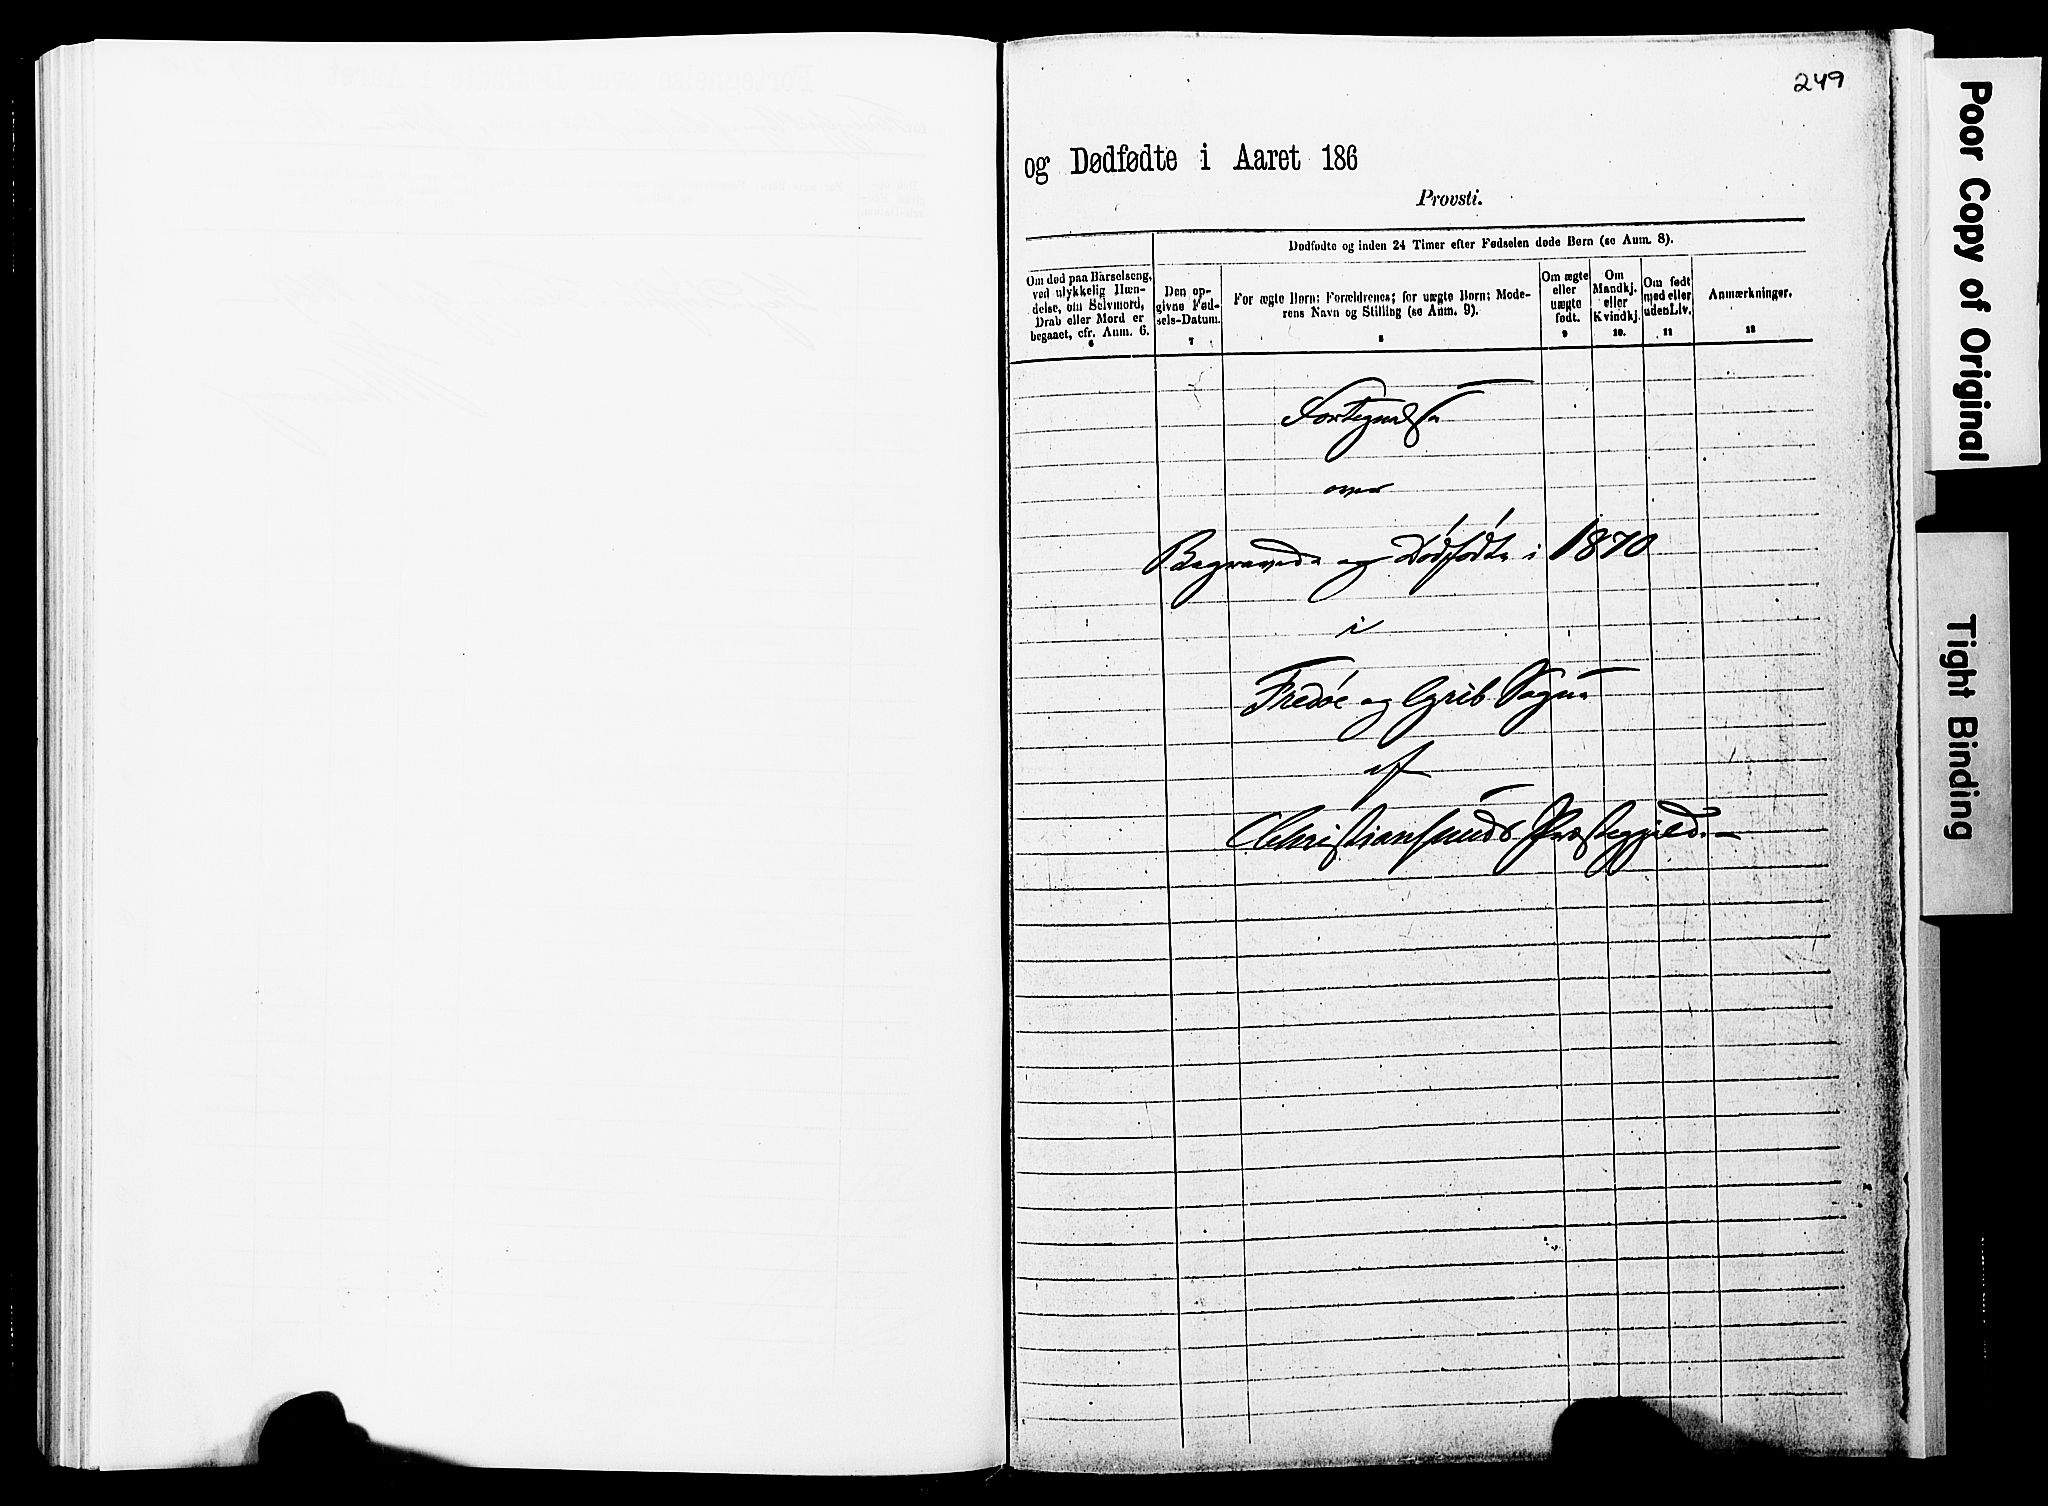 249
og Dødfødte i Aaret 186
Provsti.
Dødfødte og inden 24 Timer efter Fødselen døde Børn (se Anm. 8).
Om død paa Barselseng,
ved ulykkelig Hæn-
delse, om Selvmord,
Drab eller Mord er
begaaet, cfr. Anm. 6.
6
Den op-
givne Fød-
sels-Datum.
7
For ægte Børn: Forældrenes; for uægte Børn: Mode-
rens Navn og Stilling (se Anm. 9).
8
Om ægte
eller
uægte
født.
9
Om
Mandkj.
eller
Kvindkj.
10.
Om født
med eller
uden Liv.
11
Anmærkninger.
12
Fortegnelse
over
Begravede og Dødfødte i 1870
i
Fredøe og Grib Sogne
af
Christiansunds Præstegjeld.
Poor Copy of Original
Tight Binding